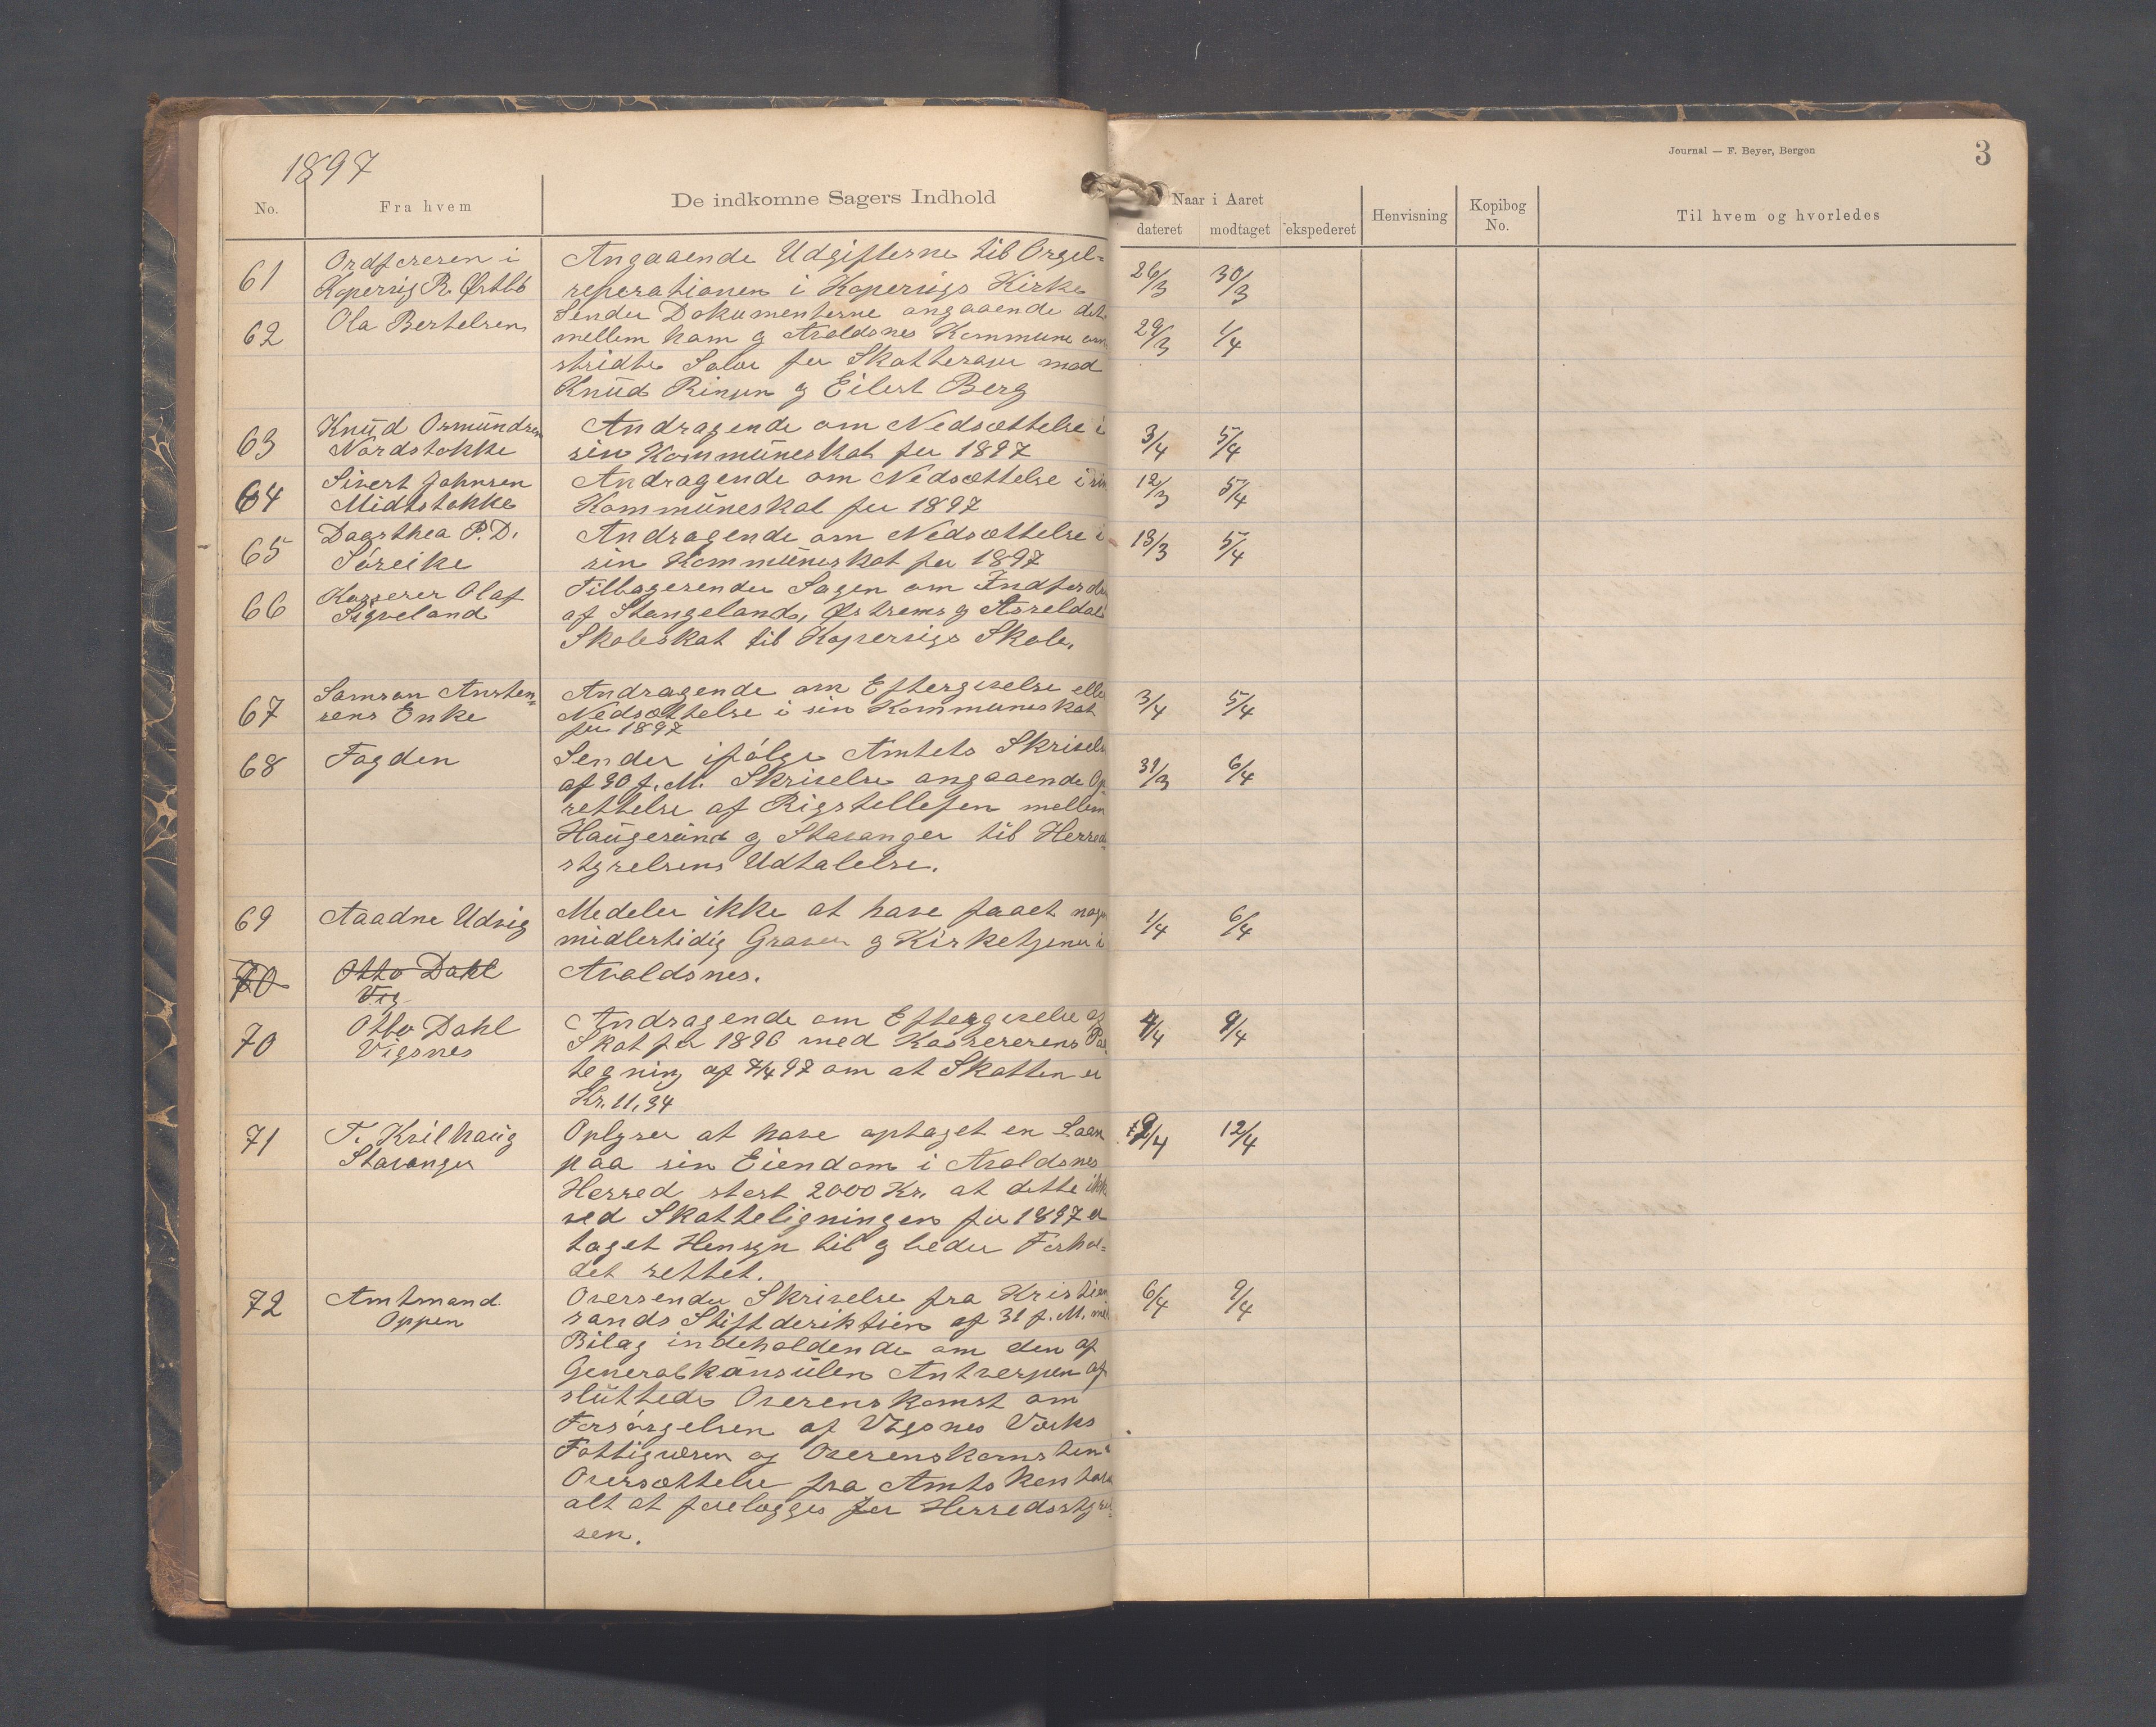 1897
Journal — F. Beyer, Bergen
3
No. Fra hvem De indkomne Sagers Indhold Naar i Aaret Henvisning Kopibog No. Til hvem og hvorledes
dateret modtaget ekspederet
61 Ordføreren i Angaaende Udgifterne til Orgel- 26/3 30/3
Kopervig R. Østbø reperationen i Kopervigs Kirke
62 Ola Bertelsen Sender Dokumenterne angaaende det 29/3 1/4
mellem ham og Avaldsnes Kommune om
stridte Salær for Skattesager mod
Knud og Eilert Berg
63 Knud Osmundsen Andragende om Nedsættelse i 3/4 5/4
Nordstokke sin Kommuneskat for 1897
64 Sivert Johnsen Andragende om Nedsættelse i sin 12/3 5/4
Midtstokke Kommuneskat for 1897
65 Daarthea P.D. Andragende om Nedsættelse i 13/3 5/4
Søreike sin Kommuneskat for 1897
66 Kasserer Olaf Tilbagesender Sagen om
Sigveland af Stangelands, Østrems og
Skoleskat til Kopervigs Skole.
67 Samson Austen- Andragende om Eftergivelse eller 3/4 5/4
sens Enke Nedsættelse i sin Kommuneskat
for 1897
68 Fogden Sender ifølge Amtets Skrivelse 31/3 6/4
af 30 f. M. Skrivelse angaaende Op-
rettelse af Rigstellefon mellem
Haugesund og Stavanger til Herreds-
styrelsens Udtalelse.
69 Aadne Udvig Medeler ikke at have faaet nogen 1/4 6/4
midlertidig Graver og Kirketjener i
70 Otto Dahl Avaldsnes.
Vig
70 Otto Dahl Andragende om Eftergivelse af 4/4 9/4
Vigsnes Skat for 1896 med Kassererens Paa-
tegning af 7/4 97 om at Skatten er
Kr. 11,34
71 T. Kvilhaug Oplyser at have optaget en Laan 9/4 12/4
Stavanger paa sin Eiendom i Avaldsnes
Herred stort 2000 Kr. at dette ikke
ved Skatteligningen for 1897 er
taget Hensyn til og beder Forhol-
det rettet.
72 Amtmand Oversender Skrivelse fra Kristian 6/4 9/4
Oppen sands Stiftderiktion af 31 f. M. med
Bilag indeholdende om den af
Generalkonsulen Antverpen af
sluttede Overenskomst om
Forsørgelsen af Vigsnes Værks
Fattigvæsen og Overenskomsten i
Oversættelse fra Amts
alt at forelægges for Herredsstyrel-
sen.